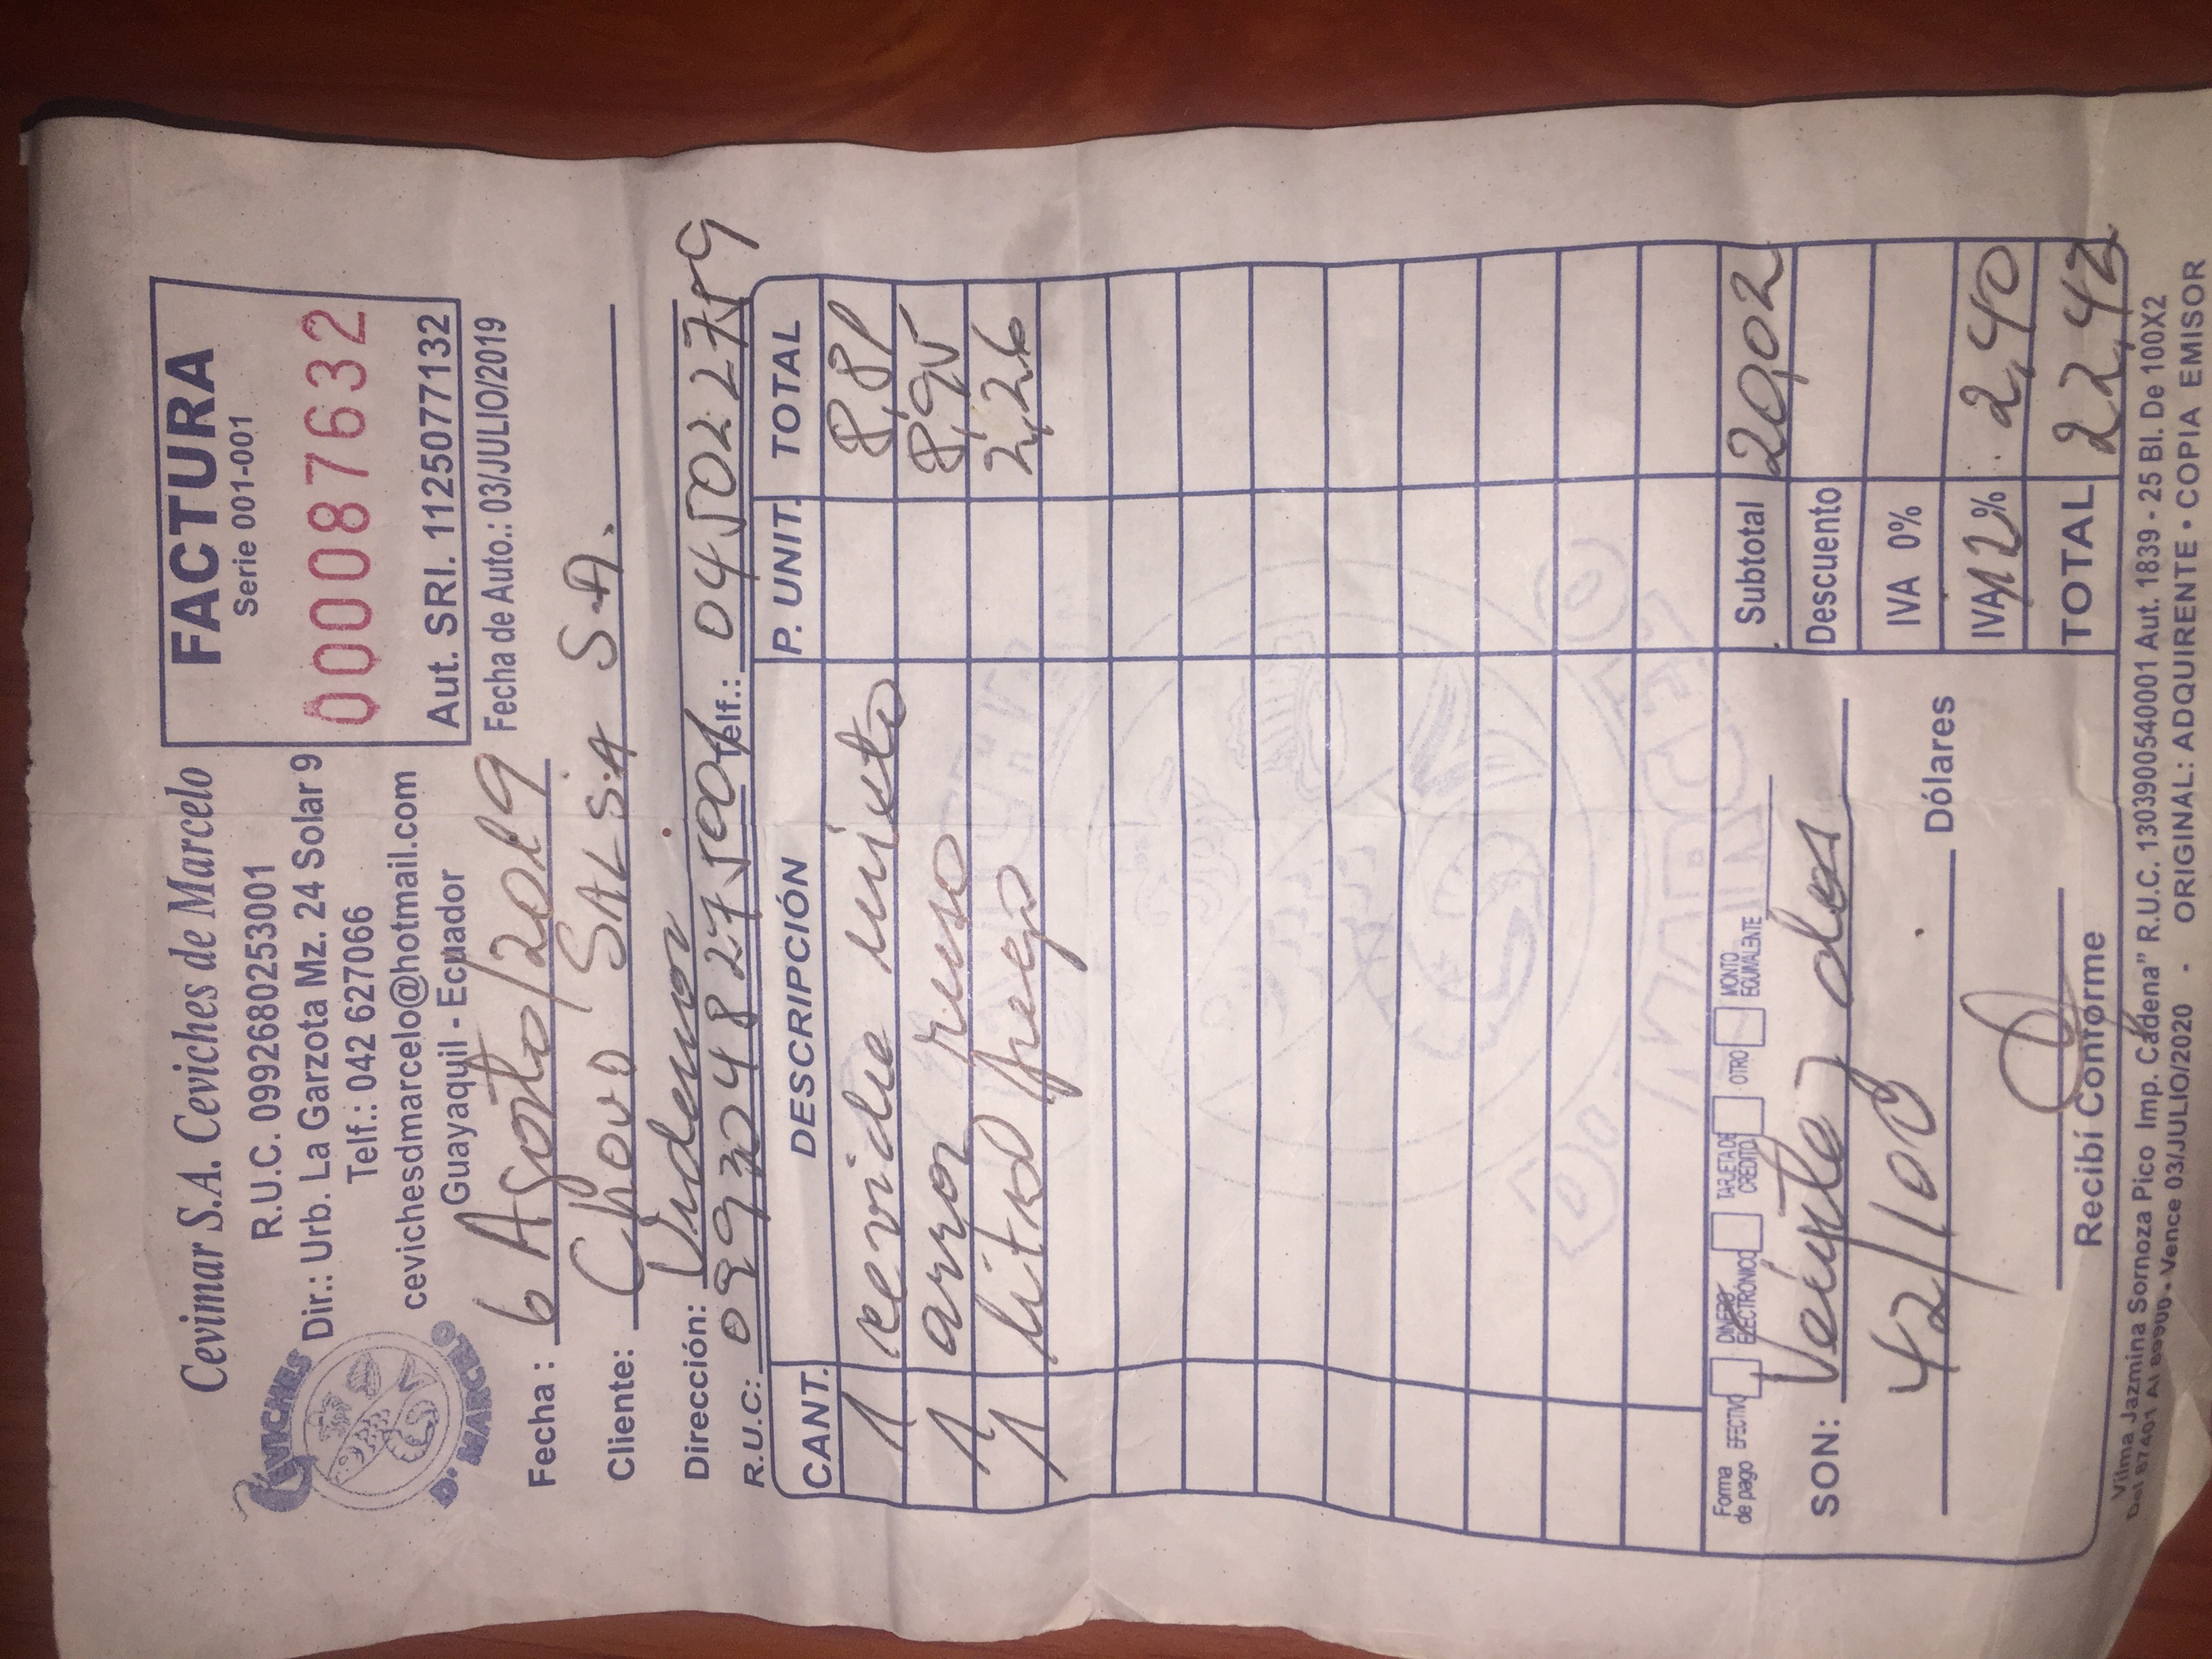 Cevimar S.A. Ceviches de Marcelo
R.U.C. 0992680253001
Dir.: Urb. La Garzota Mz. 24 Solar 9
Telf.: 042 627066
cevichesdmarcelo@hotmail.com
Guayaquil - Ecuador
CEVICHES
D. MARCELO
FACTURA
Serie 001-001
000087632
Aut. SRI. 1125077132
Fecha de Auto.: 03/JULIO/2019
Fecha : 6 Agosto/2019
Cliente: Chovo SALSA S.A.
Dirección:
R.U.C.: 0993048275001 Telf.: 045022759
CANT. DESCRIPCIÓN P. UNIT. TOTAL
1 ceviche mixto 8,81
1 arroz ruso 8,95
1 litro 2,26
Forma de pago EFECTIVO DINERO ELECTRÓNICO TARJETA DE CRÉDITO OTRO MONTO EQUIVALENTE
SON: Veinte y dos
42/100 Dólares
Recibí Conforme
Subtotal 20,02
Descuento
IVA 0%
IVA 12% 2,40
TOTAL 22,42
Vilma Jazmina Sornoza Pico Imp. Cadena" R.U.C. 1303900540001 Aut. 1839 - 25 Bl. De 100X2
Del 87401 Al 89900 • Vence 03/JULIO/2020 - ORIGINAL: ADQUIRENTE • COPIA EMISOR